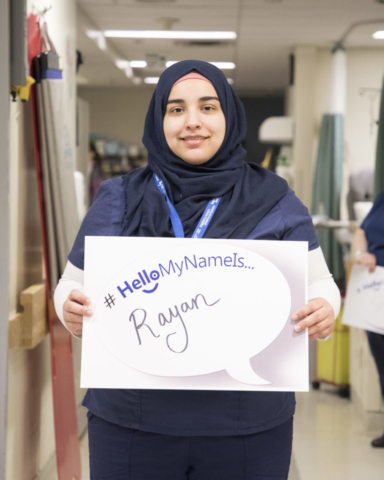 #HelloMyNameIs...
Rayan